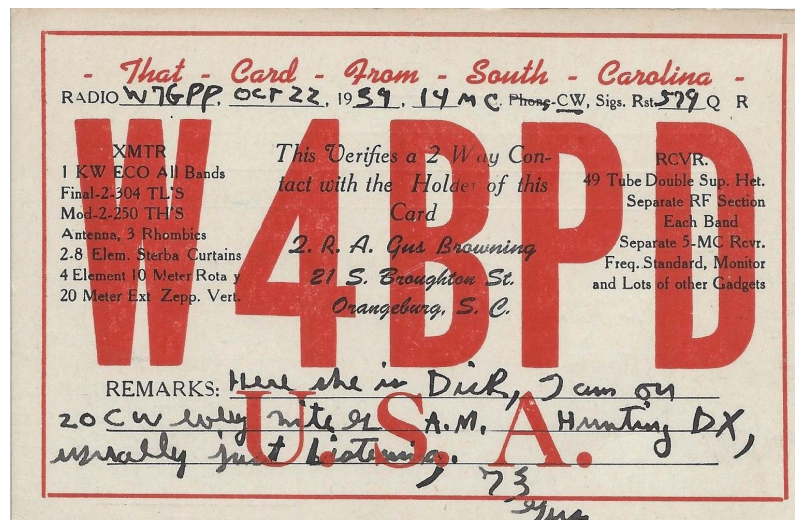 - That - Card - From - South - Carolina -
RADIO W7GPP, OCT 22, 1959, 14 MC. Phone-CW, Sigs. Rst. 579 Q R
W4BPD
XMTR
1 KW ECO All Bands
Final-2-304 TL'S
Mod-2-250 TH'S
Antenna, 3 Rhombics
2-8 Elem. Sterba Curtains
4 Element 10 Meter Rota y
20 Meter Ext Zepp. Vert.
This Verifies a 2 Way Con-
tact with the Holder of this
Card
2. R. A. Gus Browning
21 S. Broughton St.
Orangeburg, S. C.
RCVR.
49 Tube Double Sup. Het.
Separate RF Section
Each Band
Separate 5-MC Rcvr.
Freq. Standard, Monitor
and Lots of other Gadgets
REMARKS: Here she is Dick, I am on
20 CW every nite & A.M. Hunting DX,
usually just Listening.
U. S. A.
73
Gus